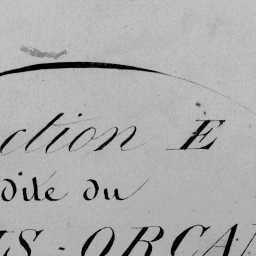 ction E
dite du
IS-ORCAN